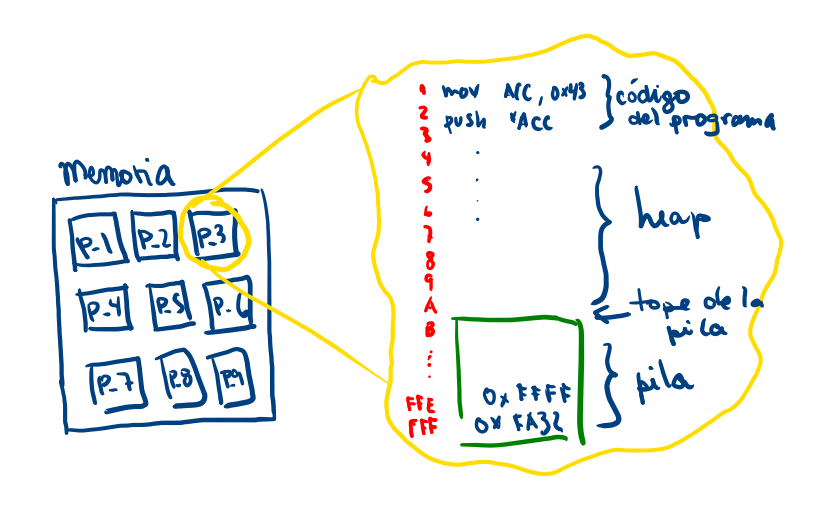 Memoria
P_1 P_2 P_3
P_4 P_5 P_6
P_7 P_8 P_9
1 mov ACC, 0x43
2 push *ACC
3
4
5
6
7
8
9
A
B
FFE 0xFFFF
FFF 0xFA32
código
del programa
heap
tope de la
pila
pila